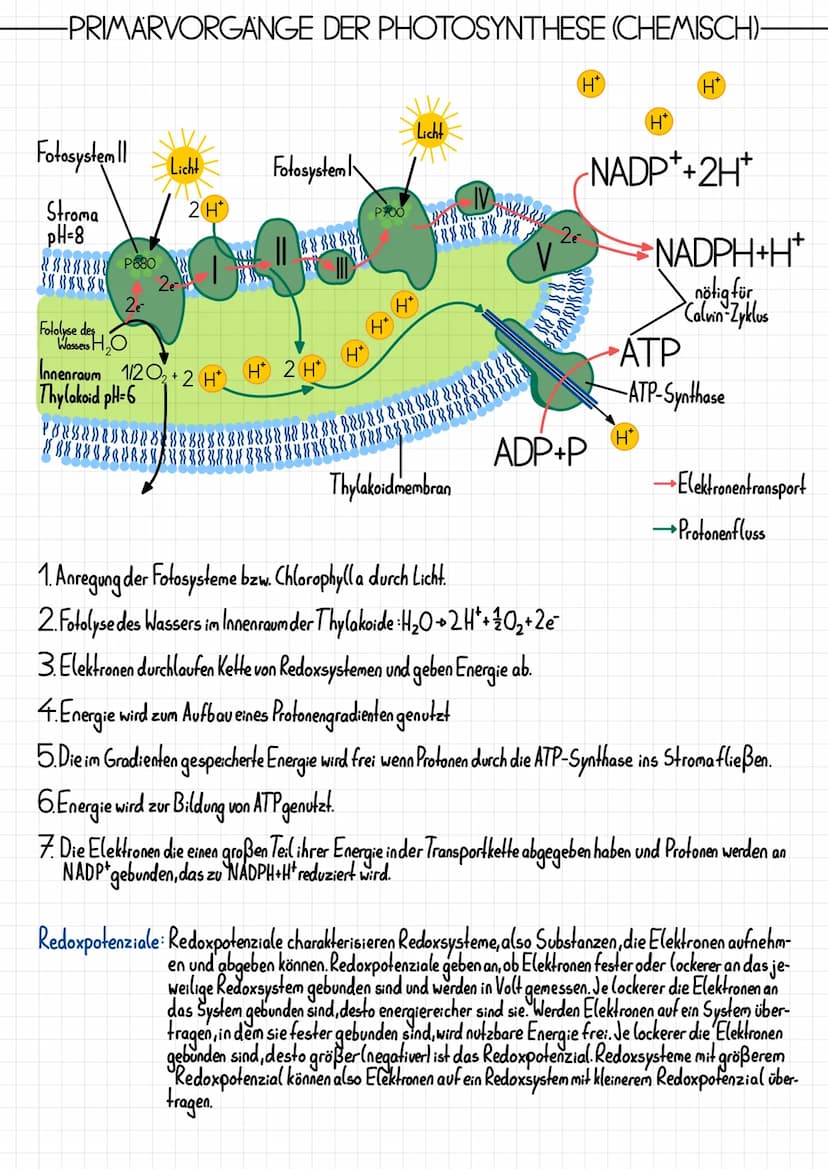 PRIMÄRVORGÄNGE DER PHOTOSYNTHESE (CHEMISCH)
H⁺
H⁺
H⁺
Licht
Fotosystem II
Licht
Fotosystem I
NADP⁺+2H⁺
2 H⁺
Stroma
pH=8
P700
IV
2e⁻
V
NADPH+H⁺
P680
I
II
III
2e⁻
2e⁻
nötig für
Calvin-Zyklus
H⁺
H⁺
Fotolyse des
Wassers H₂O
ATP
H⁺
Innenraum
Thylakoid pH=6
1/2 O₂ + 2 H⁺
H⁺
2 H⁺
ATP-Synthase
H⁺
ADP+P
Thylakoidmembran
Elektronentransport
Protonenfluss
1. Anregung der Fotosysteme bzw. Chlorophyll a durch Licht.
2. Fotolyse des Wassers im Innenraum der Thylakoide: H₂O→2H⁺+½O₂+2e⁻
3. Elektronen durchlaufen Kette von Redoxsystemen und geben Energie ab.
4. Energie wird zum Aufbau eines Protonengradienten genutzt
5. Die im Gradienten gespeicherte Energie wird frei wenn Protonen durch die ATP-Synthase ins Stroma fließen.
6. Energie wird zur Bildung von ATP genutzt.
7. Die Elektronen die einen großen Teil ihrer Energie in der Transportkette abgegeben haben und Protonen werden an
NADP⁺ gebunden, das zu NADPH+H⁺ reduziert wird.
Redoxpotenziale: Redoxpotenziale charakterisieren Redoxsysteme, also Substanzen, die Elektronen aufnehm-
en und abgeben können. Redoxpotenziale geben an, ob Elektronen fester oder lockerer an das je-
weilige Redoxsystem gebunden sind und werden in Volt gemessen. Je lockerer die Elektronen an
das System gebunden sind, desto energiereicher sind sie. Werden Elektronen auf ein System über-
tragen, in dem sie fester gebunden sind, wird nutzbare Energie frei. Je lockerer die Elektronen
gebunden sind, desto größer (negativer) ist das Redoxpotenzial. Redoxsysteme mit größerem
Redoxpotenzial können also Elektronen auf ein Redoxsystem mit kleinerem Redoxpotenzial über-
tragen.